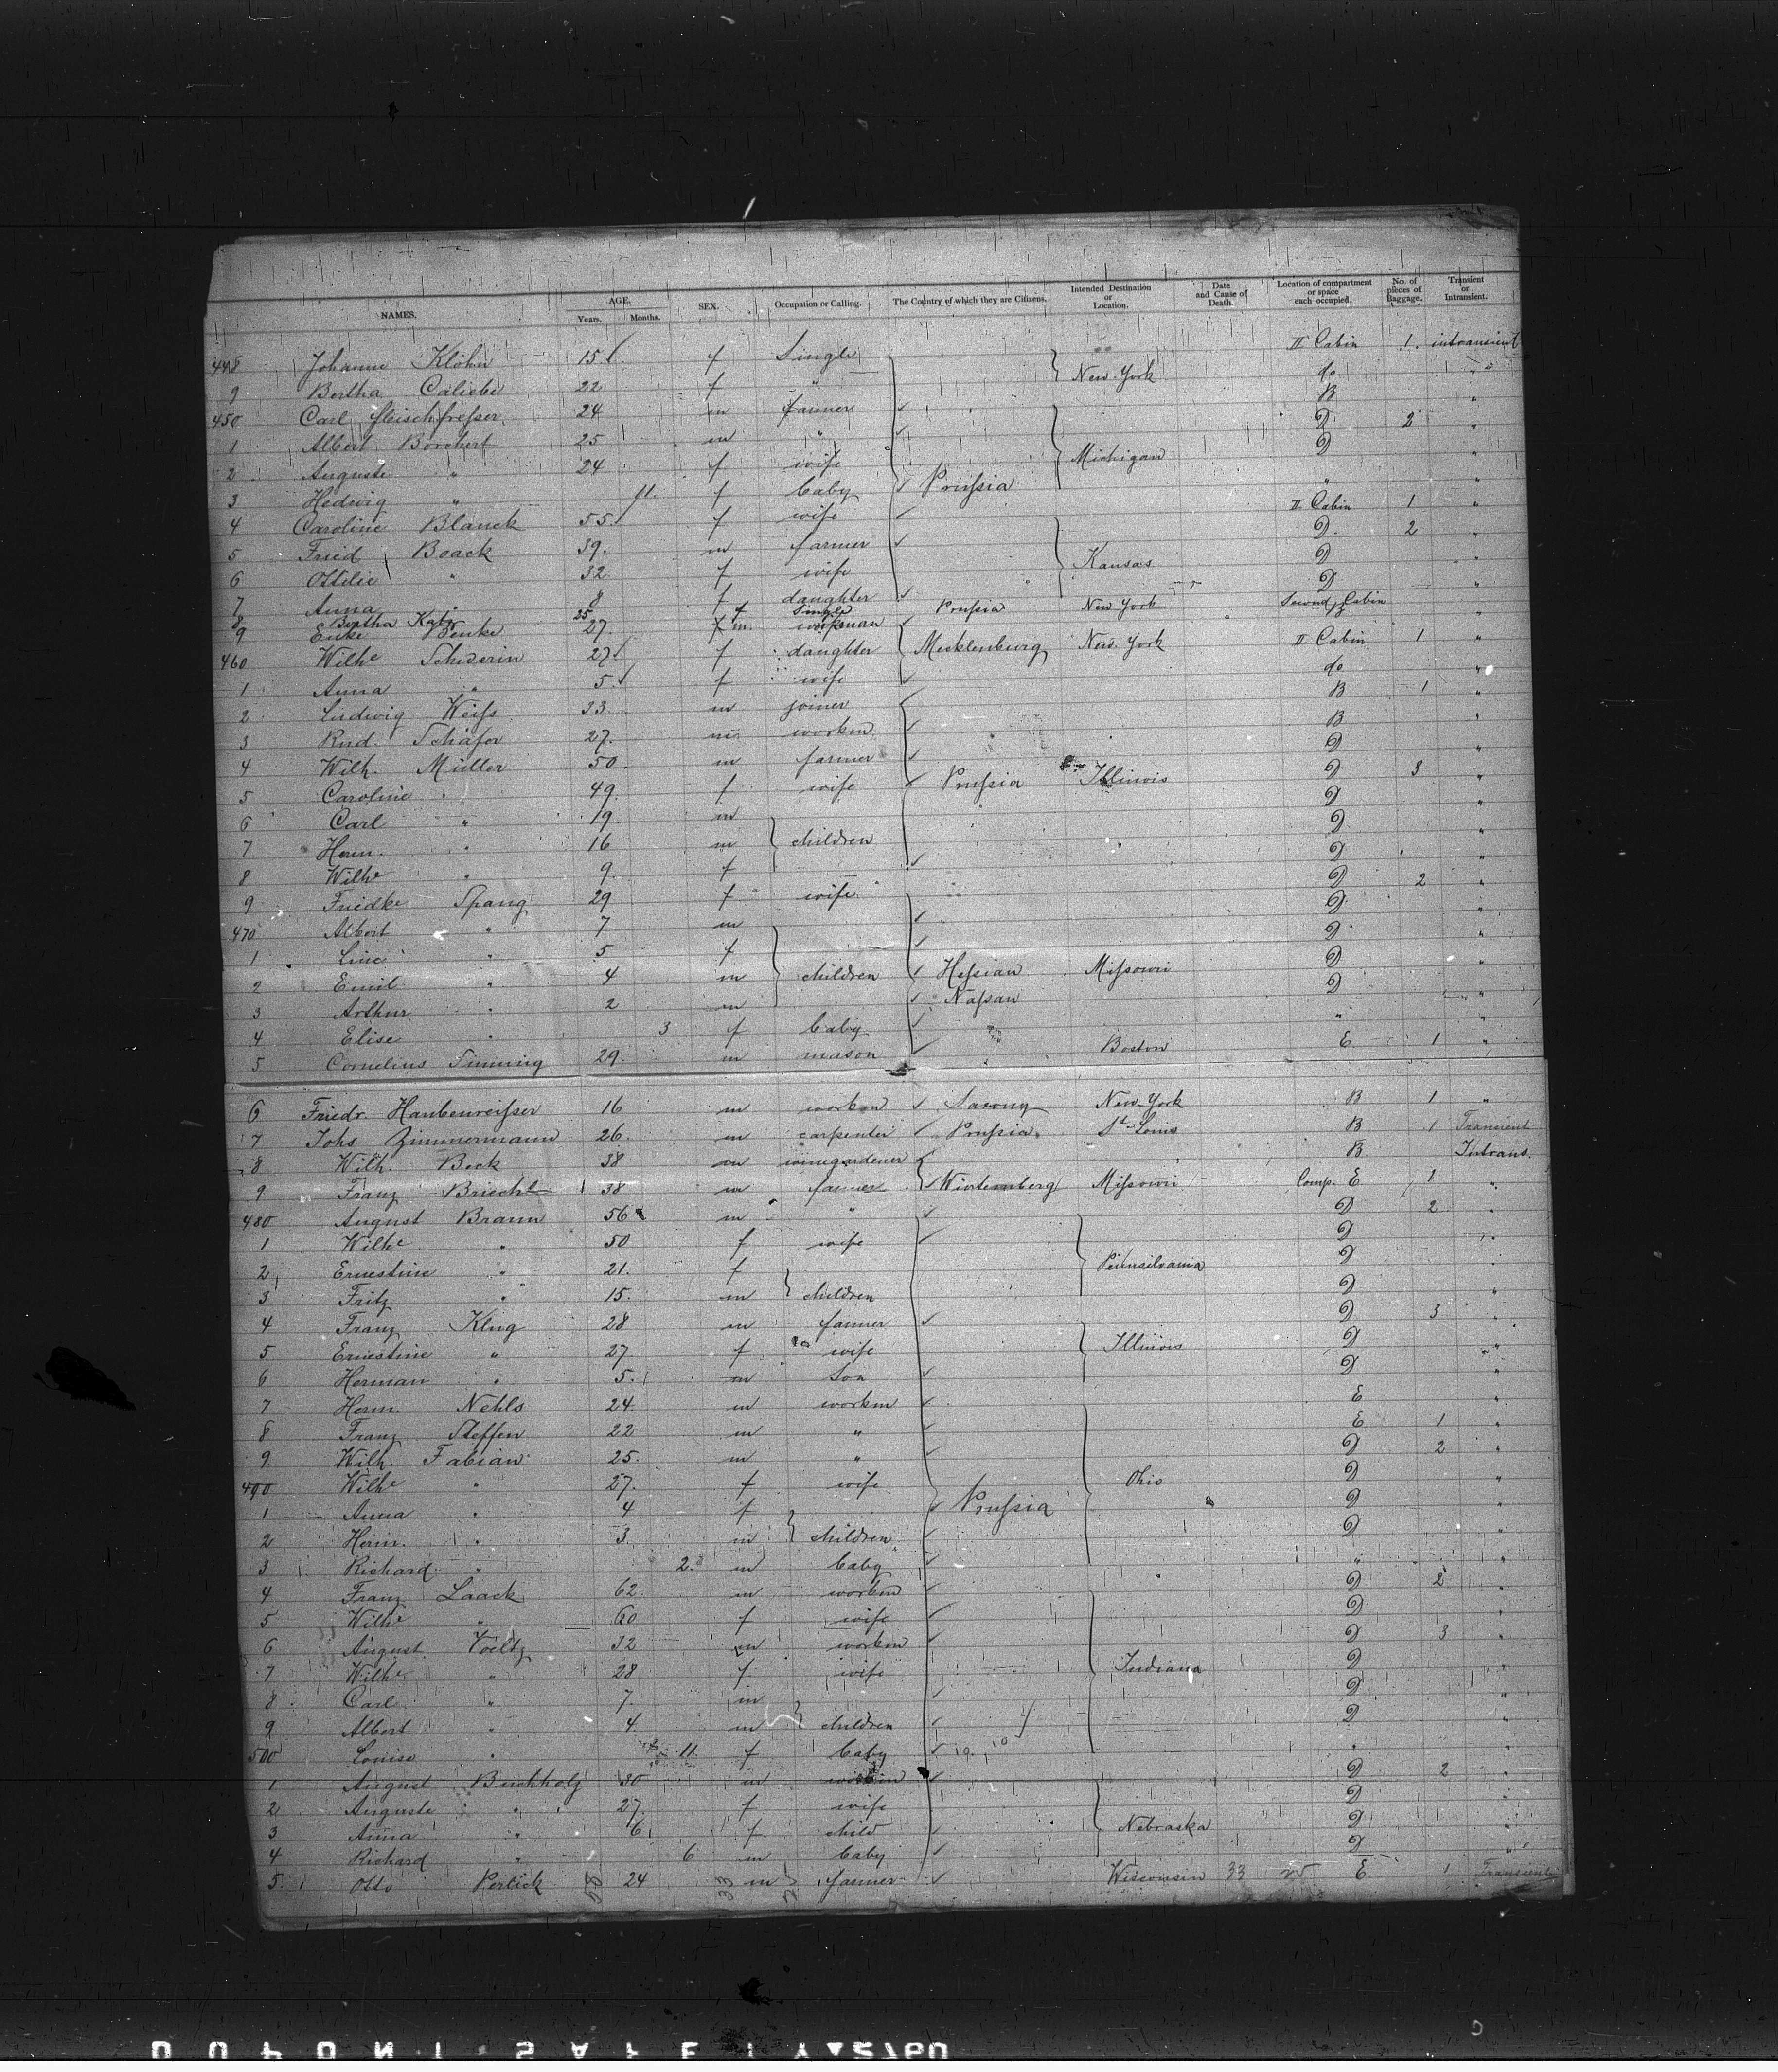 NAMES. AGE. Years. Months. SEX. Occupation or Calling. The Country of which they are Citizens. Intended Destination or Location. Date and Cause of Death. Location of compartment or space each occupied. No. of pieces of Baggage. Transient or Intransient.
448 Johanne Klöhn 15 f Single II Cabin 1. intransient
9 Bertha Caliebe 22 f " New York do "
450 Carl Fleischfresser 24 m farmer B "
1 Albert Borchert 25 m " D 2 "
2 Auguste " 24 f wife Michigan D "
3 Hedwig " 11. f baby Prussia " "
4 Caroline Blanck 55. f wife II Cabin 1 "
5 Fried Boack 39. m farmer D. 2 "
6 Ottilie " 32. f wife Kansas D "
7 Anna " 8 f daughter D "
8 Bertha Katz 25 f Single Prussia New York Second Cabin "
9 Benke 27. m. workman
460 Wilhe Schwerin 27. f daughter Mecklenburg New York II Cabin 1 "
1 Anna " 5. f wife do "
2 Ludwig Weiss 33. m joiner B 1 "
3 Rud. Schäfer 27. m workm B "
4 Wilh. Müller 50. m farmer D "
5 Caroline " 49. f wife Prussia Illinois D 3 "
6 Carl " 19. m D
7 Herm. " 16 m children D "
8 Wilhe " 9. f D "
9 Friedke Spang 29 f wife D 2 "
470 Albert " 7 m D "
1 Line " 5 f D "
2 Emil " 4 m children Hessian Missouri D "
3 Arthur " 2 m Nassau D "
4 Elise " 3 f baby " " "
5 Cornelius Simmig 29. m mason Boston E 1 "
6 Friedr. Haubenreisser 16 m workm Saxony New York B 1 "
7 Johs Zimmermann 26. m carpenter Prussia St Louis B 1 Transient
8 Wilh. Bock 38 m winegardener B Intrans.
9 Franz Briecht 38 m farmer Wirtemberg Missouri Comp. E 1 "
480 August Braun 56 m " D 2 "
1 Wilhe " 50 f wife D "
2 Ernestine " 21. f Pennsilvania D "
3 Fritz " 15. m children D "
4 Franz Klug 28 m farmer D 3 "
5 Ernestine " 27 f wife Illinois D "
6 Herman " 5. m Son D "
7 Herm. Nehls 24. m workm E "
8 Franz Steffen 22 m " E 1 "
9 Wilh. Fabian 25. m " D 2 "
490 Wilhe " 27. f wife Ohio D "
1 Anna " 4 f Prussia D
2 Herm. " 3 m children D "
3 Richard " 2. m baby " "
4 Franz Laack 62. m workm D 2 "
5 Wilhe " 60 f wife D "
6 August Voeltz 32 m workm D 3 "
7 Wilhe " 28 f wife Indiana D "
8 Carl " 7. m D "
9 Albert " 4. m children D "
500 Louise " 11. f baby " "
1 August Buchholz 30 m workm D 2 "
2 Auguste " 27. f wife D "
3 Anna " 6 f. child Nebraska D "
4 Richard " 6 m baby D "
5 Otto Perlick 24 m farmer Wisconsin 33 E 1 Transient
58 33 25
DUPONT SAFETY